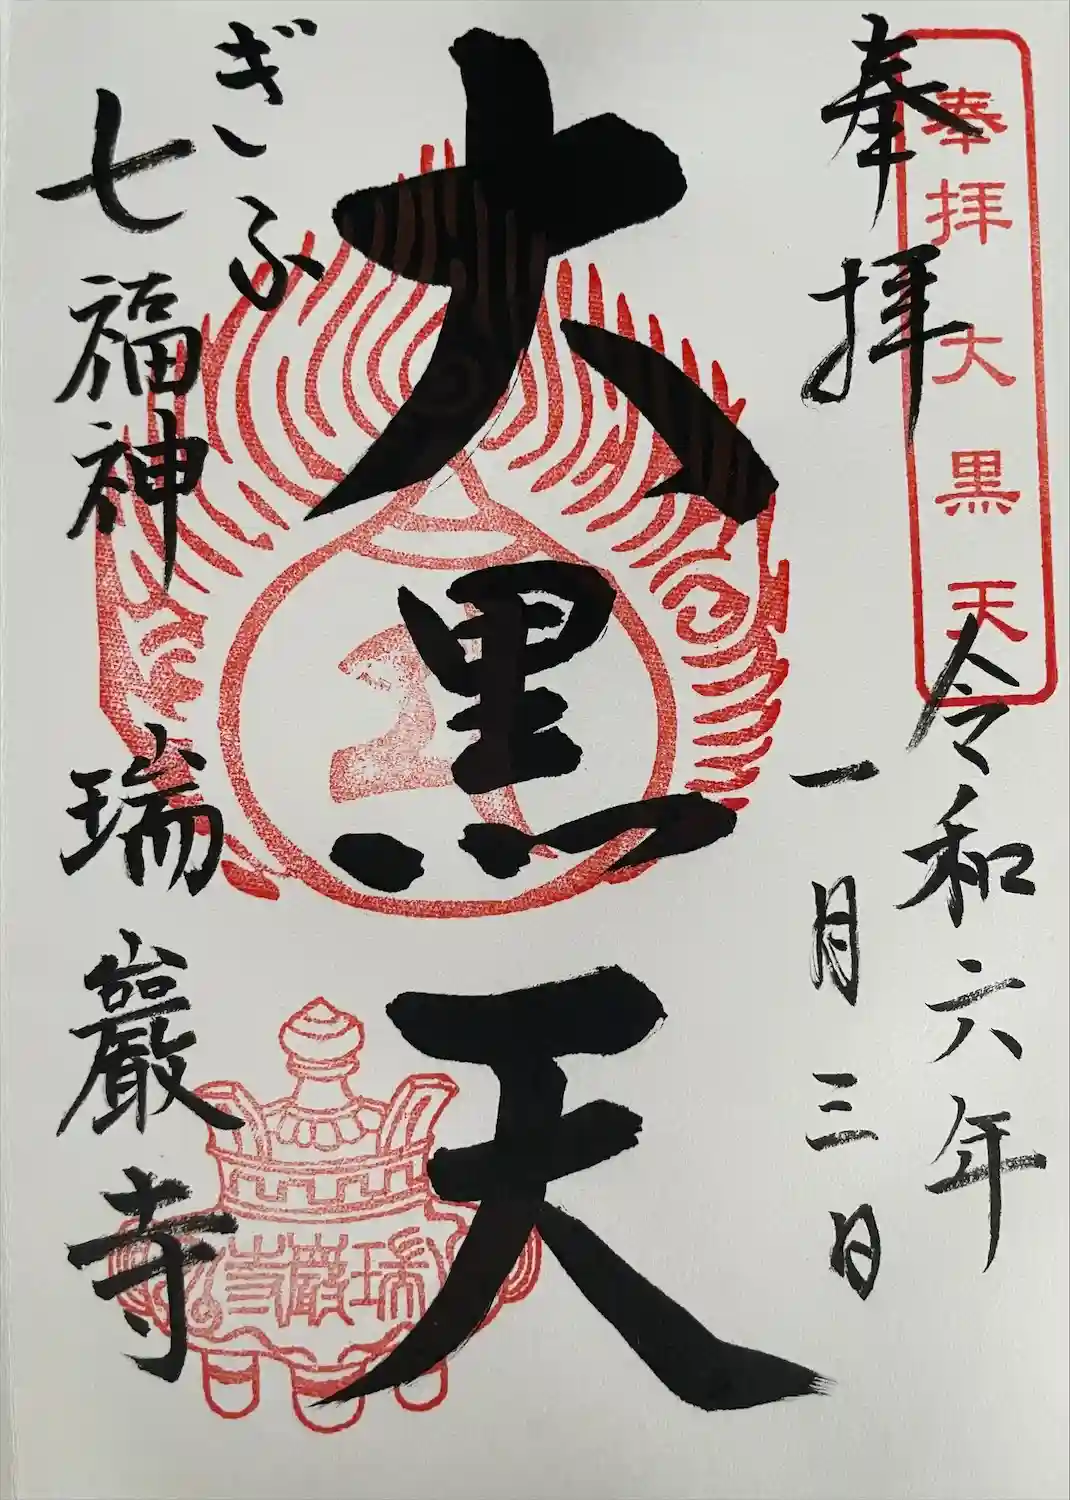 奉拝大黒天
奉拝
令和六年
一月三日
大黒天
ぎふ
七福神
瑞巖寺
瑞巖寺